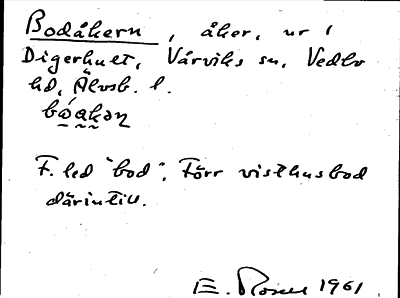 Bodåkern, åker, ur 1
Digerhult, Vårviks sn, Vedbo
hd, Älvsb. l.
bóakəɳ
F. led "bod". Förr visthusbod
därintill.
E. Rosell 1961